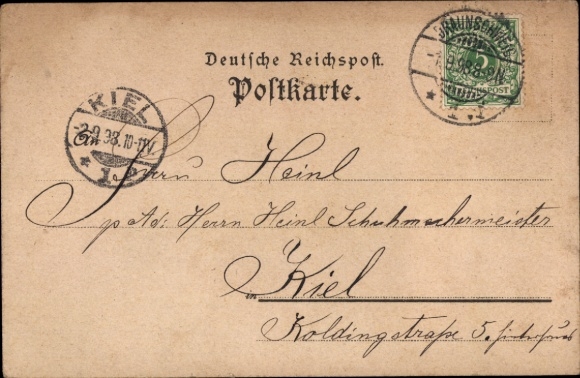 Deutsche Reichspost.
Postkarte.
BRAUNSCHWEIG
9.98. 8-9N.
* 1. *
5
REICHSPOST
KIEL
2.9.98. 10-11V.
* 1. *
An
Herrn Heinl
p Ad: Herrn Heinl Schuhmachermeister
in Kiel
Koldingstraße 5.